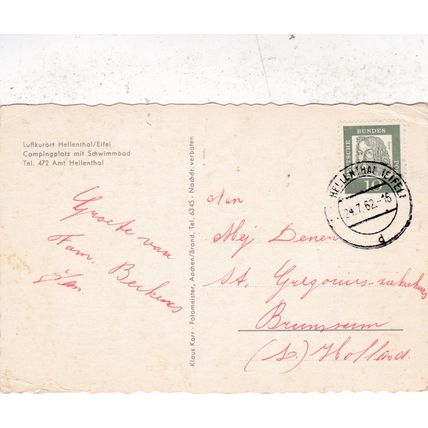 Luftkurort Hellenthal/Eifel
Campingplatz mit Schwimmbad
Tel. 472 Amt Hellenthal
Groete van
Fam. Berkens
Klaus Karr Fotomeister, Aachen/Brand, Tel. 6345 · Nachdr verboten
DEUTSCHE BUNDES
10
HELLENTHAL (EIFEL)
24.7.62.-15
d
Aan
Mej Denen
St. Gregorius-ziekenhuis
Brunssum
(L.) Holland.